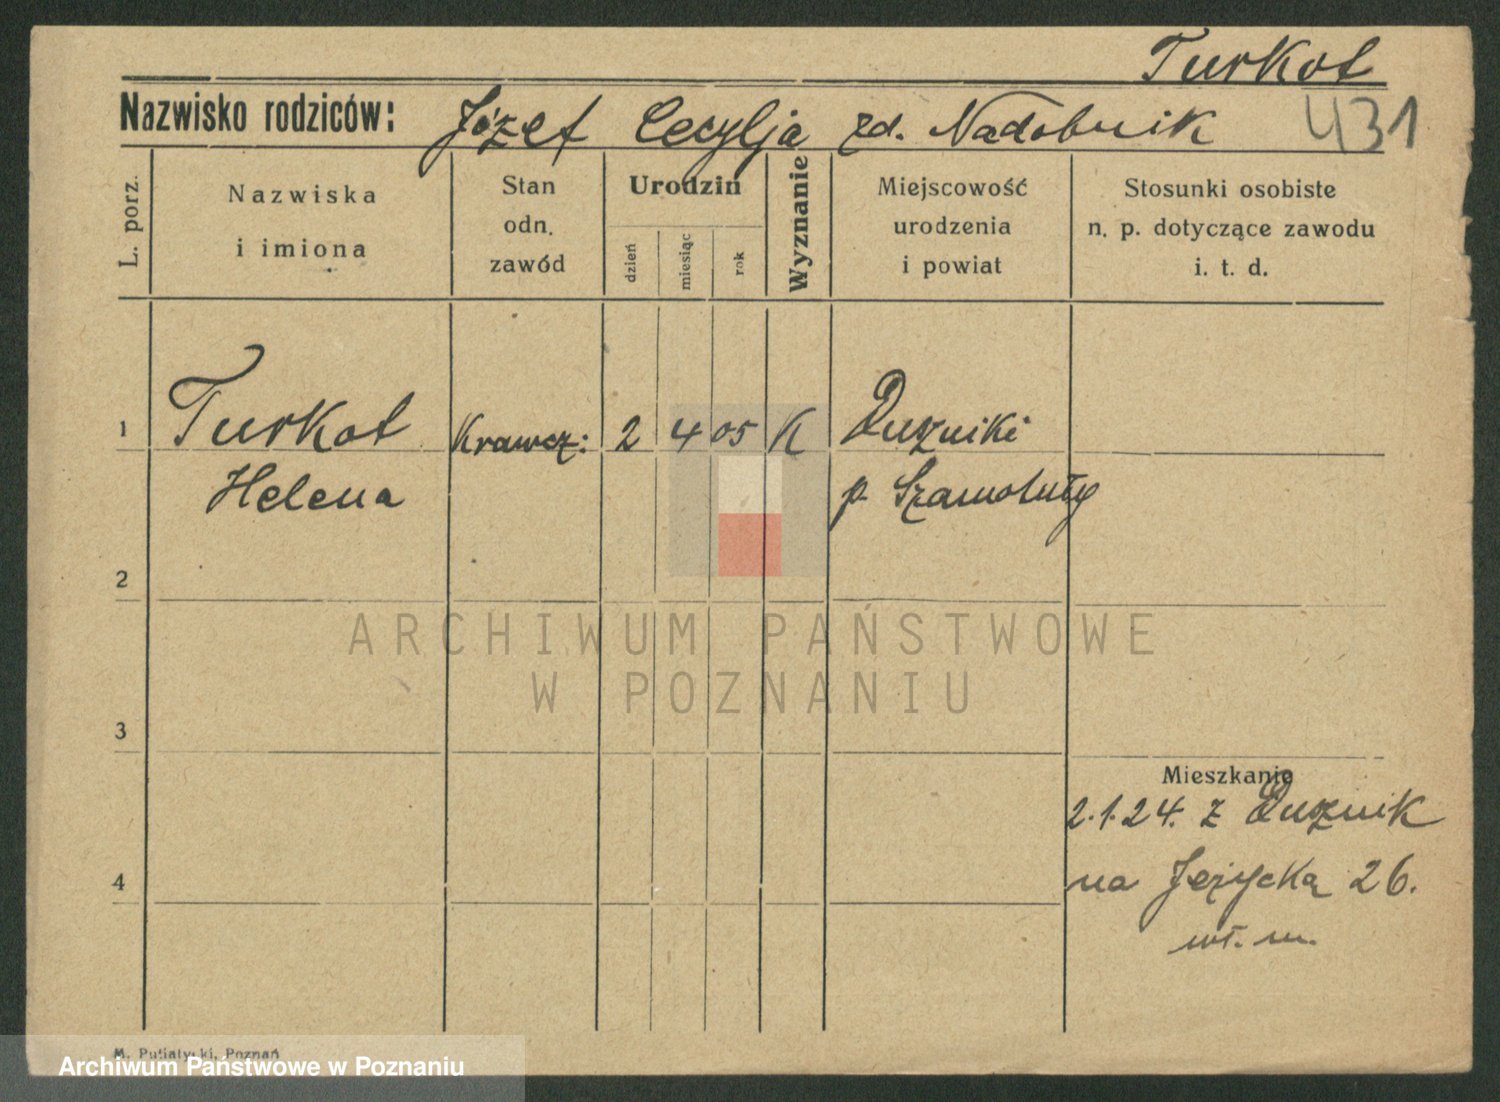 Turkot
Nazwisko rodziców: Józef Cecylja zd. Nadobnik 431
L. porz.
Nazwiska
i imiona
Stan
odn.
zawód
Urodzin
dzień
miesiąc
rok
Wyznanie
Miejscowość
urodzenia
i powiat
Stosunki osobiste
n. p. dotyczące zawodu
i. t. d.
1 Turkot Krawcz: 2 4 05 K Duszniki
Helena p. Szamotuły
2
ARCHIWUM PAŃSTWOWE
W POZNANIU
3
Mieszkanie
2.1.24. z Dusznik
4
na Jeżycką 26.
wł. m.
M. Putiatycki, Poznań
Archiwum Państwowe w Poznaniu